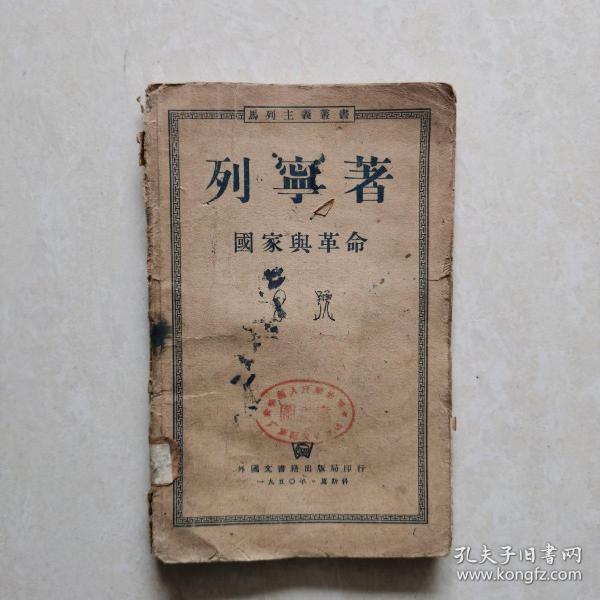 馬列主義叢書
列寧著
國家與革命
號
外國文書籍出版局印行
一九五〇年·莫斯科
孔夫子旧书网
www.kongfz.com